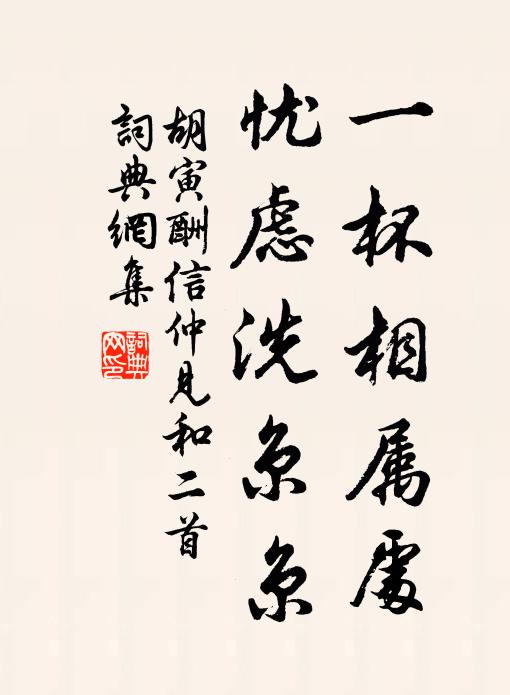 一杯相属處
忧虑洗京京
胡寅酬信仲見和二首
詞典網集
詞典网印